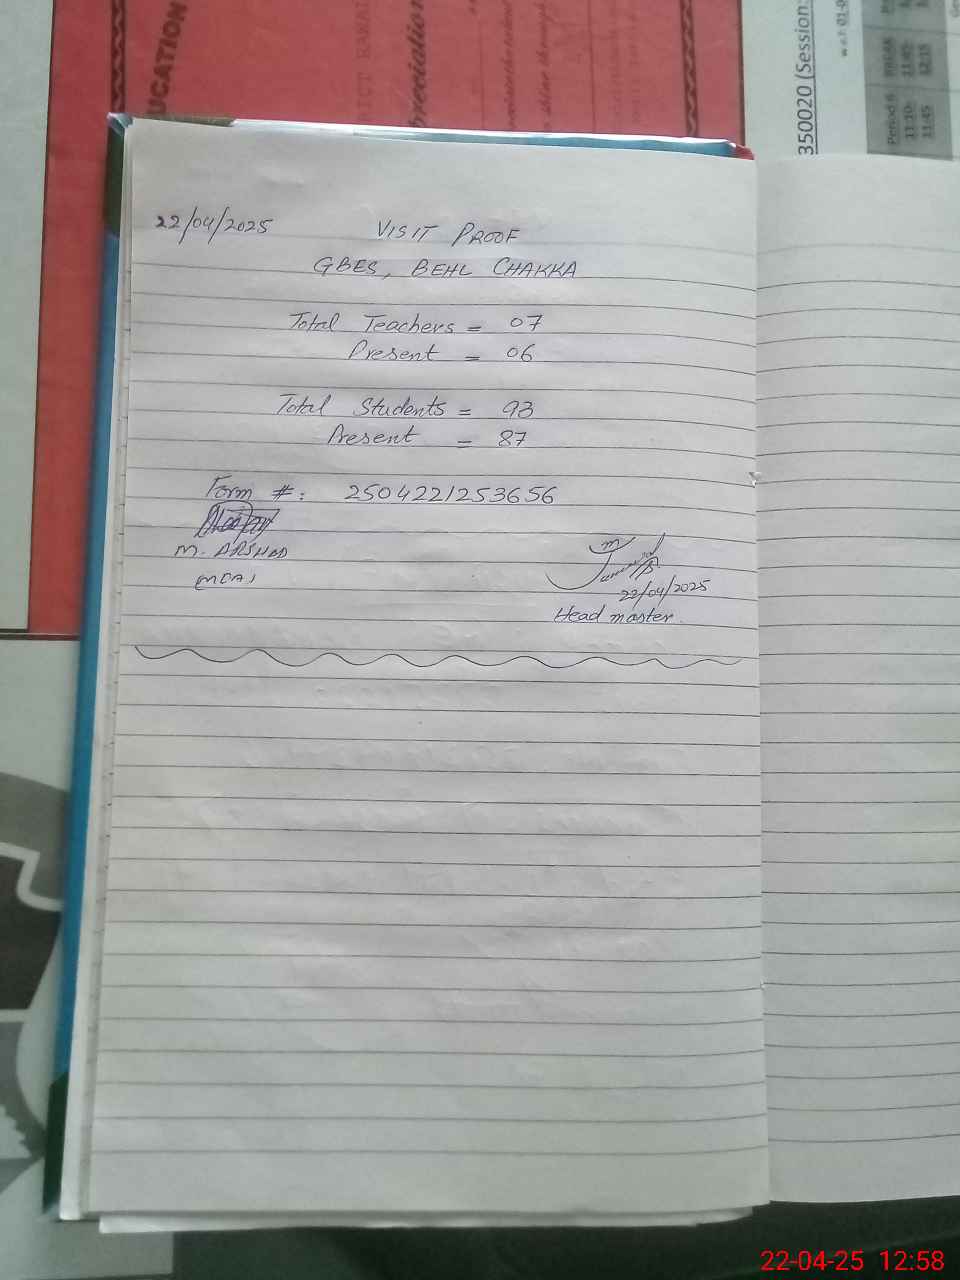 UCATION
350020 (Session:
w.e.f: 01-0
Period 6
11:10-
11:45
BREAK
11:45-
12:15
22/04/2025
VISIT PROOF
GBES, BEHL CHAKKA
Total Teachers = 07
Present = 06
Total Students = 93
Present = 87
Form #: 2504221253656
M. ARSHAD
22/04/2025
Head master.
22-04-25 12:58